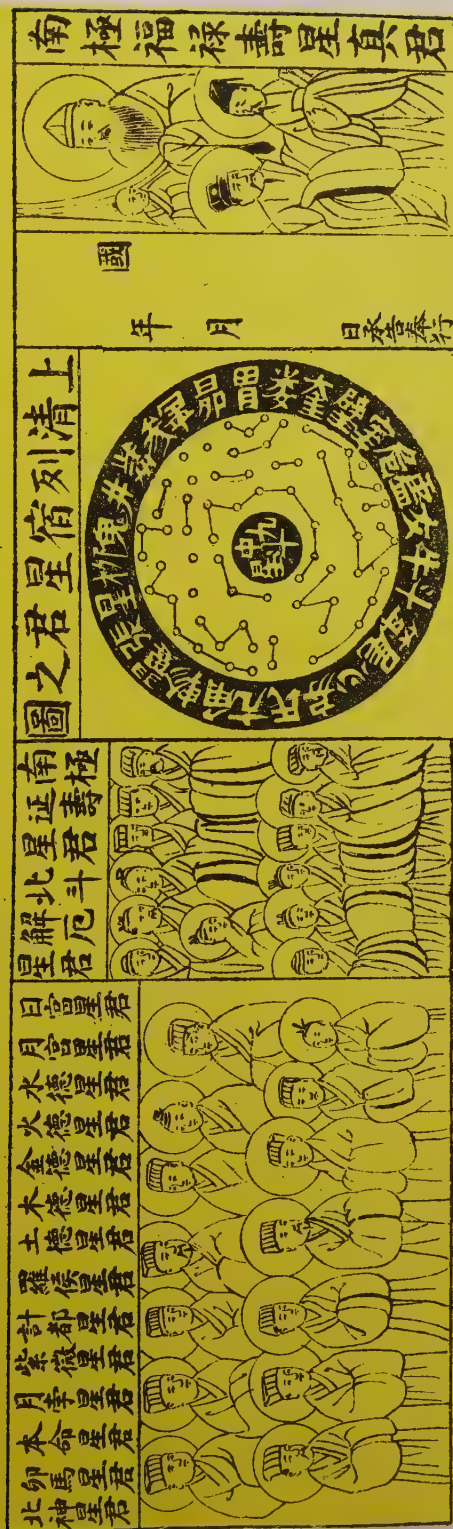 南極福祿壽星真君
國
年 月 日承旨奉行
上清列宿星君之圖
角亢氐房心尾箕斗牛女虛危室壁奎婁胃昴畢參觜井鬼柳星張翼軫
南極延壽星君
北斗解厄星君
日宮星君
月宮星君
水德星君
火德星君
金德星君
木德星君
土德星君
羅侯星君
計都星君
紫微星君
月孛星君
本命星君
卯馬星君
北神星君